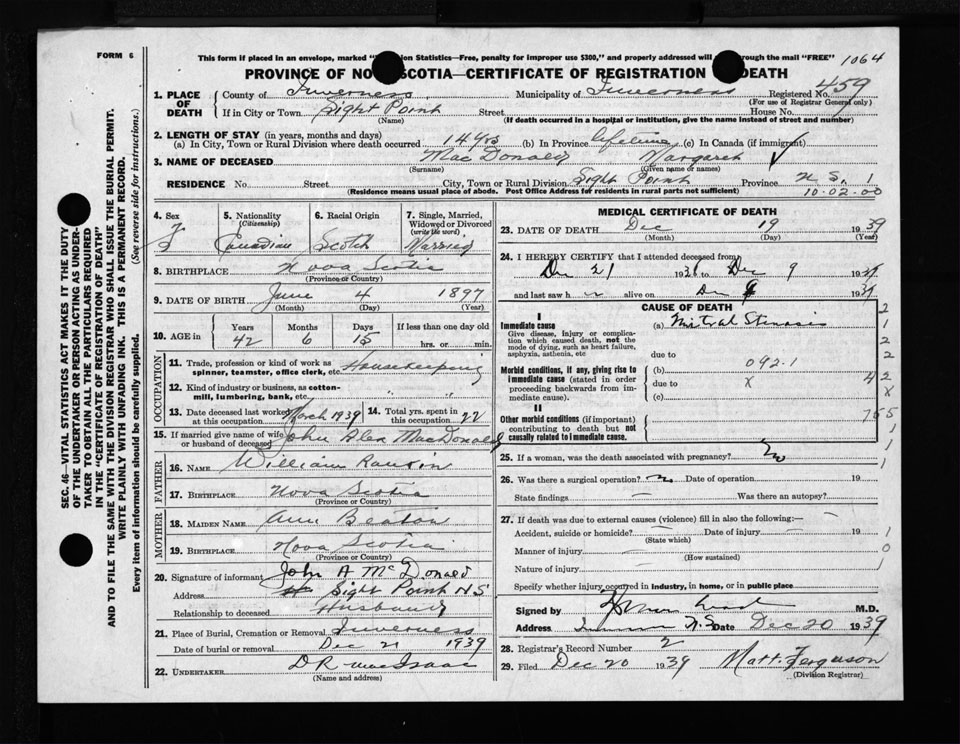 FORM 6
This form if placed in an envelope, marked "on Statistics—Free, penalty for improper use $300," and properly addressed will rough the mail "FREE" 1064
PROVINCE OF NO SCOTIA—CERTIFICATE OF REGISTRATION DEATH
1. PLACE OF DEATH
County of Inverness Municipality of Inverness Registered No. 459
(For use of Registrar General only)
If in City or Town Sight Point Street House No.
(Name) (If death occurred in a hospital or institution, give the name instead of street and number)
2. LENGTH OF STAY (in years, months and days)
(a) In City, Town or Rural Division where death occurred 14 yrs (b) In Province lifetime (c) In Canada (if immigrant)
3. NAME OF DECEASED MacDonald Margaret ✓
(Surname) (Given name or names)
RESIDENCE No. Street City, Town or Rural Division Sight Point Province N S. 1
(Residence means usual place of abode. Post Office Address for residents in rural parts not sufficient) 10.02.00
4. Sex F
5. Nationality (Citizenship) Canadian
6. Racial Origin Scotch
7. Single, Married, Widowed or Divorced (write the word) Married
8. BIRTHPLACE Nova Scotia
(Province or Country)
9. DATE OF BIRTH June 4 1897
(Month) (Day) (Year)
10. AGE in Years Months Days If less than one day old
42 6 15 hrs. or min.
OCCUPATION
11. Trade, profession or kind of work as spinner, teamster, office clerk, etc. Housekeeping
12. Kind of industry or business, as cotton-mill, lumbering, bank, etc. " "
13. Date deceased last worked at this occupation March 1939
14. Total yrs. spent in this occupation 22
15. If married give name of wife or husband of deceased John Alex MacDonald
FATHER
16. NAME William Rankin
17. BIRTHPLACE Nova Scotia
(Province or Country)
MOTHER
18. MAIDEN NAME Ann Beaton
19. BIRTHPLACE Nova Scotia
(Province or Country)
20. Signature of informant John A McDonald
Address Sight Point NS
Relationship to deceased Husband
21. Place of Burial, Cremation or Removal Inverness
Date of burial or removal Dec 21 1939
22. UNDERTAKER D R MacIsaac
(Name and address)
MEDICAL CERTIFICATE OF DEATH
23. DATE OF DEATH Dec 19 1939
(Month) (Day) (Year)
24. I HEREBY CERTIFY that I attended deceased from
Dec 21 1938 to Dec 9 1939
and last saw h alive on Dec 9 1939
CAUSE OF DEATH
I
Immediate cause (a) Mitral Stenosis
Give disease, injury or complication which caused death, not the mode of dying, such as heart failure, asphyxia, asthenia, etc
due to
Morbid conditions, if any, giving rise to immediate cause (stated in order proceeding backwards from immediate cause).
(b) 092.1
due to X
(c)
II
Other morbid conditions (if important) contributing to death but not causally related to immediate cause.
2
1
2
2
4 2
X
765
1
1
1
25. If a woman, was the death associated with pregnancy? No
26. Was there a surgical operation? No Date of operation 19
State findings Was there an autopsy?
27. If death was due to external causes (violence) fill in also the following:—
Accident, suicide or homicide? Date of injury 19 1
(State which)
Manner of injury 0
(How sustained)
Nature of injury 1
Specify whether injury occurred in industry, in home, or in public place
Signed by M.D.
Address N.S. Date Dec 20 1939
28. Registrar's Record Number 2
29. Filed Dec 20 1939 Matt. Ferguson
(Division Registrar)
SEC. 46—VITAL STATISTICS ACT MAKES IT THE DUTY
OF THE UNDERTAKER OR PERSON ACTING AS UNDER-
TAKER TO OBTAIN ALL THE PARTICULARS REQUIRED
IN THE "CERTIFICATE OF REGISTRATION OF DEATH"
AND TO FILE THE SAME WITH THE DIVISION REGISTRAR WHO SHALL ISSUE THE BURIAL PERMIT.
WRITE PLAINLY WITH UNFADING INK. THIS IS A PERMANENT RECORD.
Every item of information should be carefully supplied. (See reverse side for instructions.)